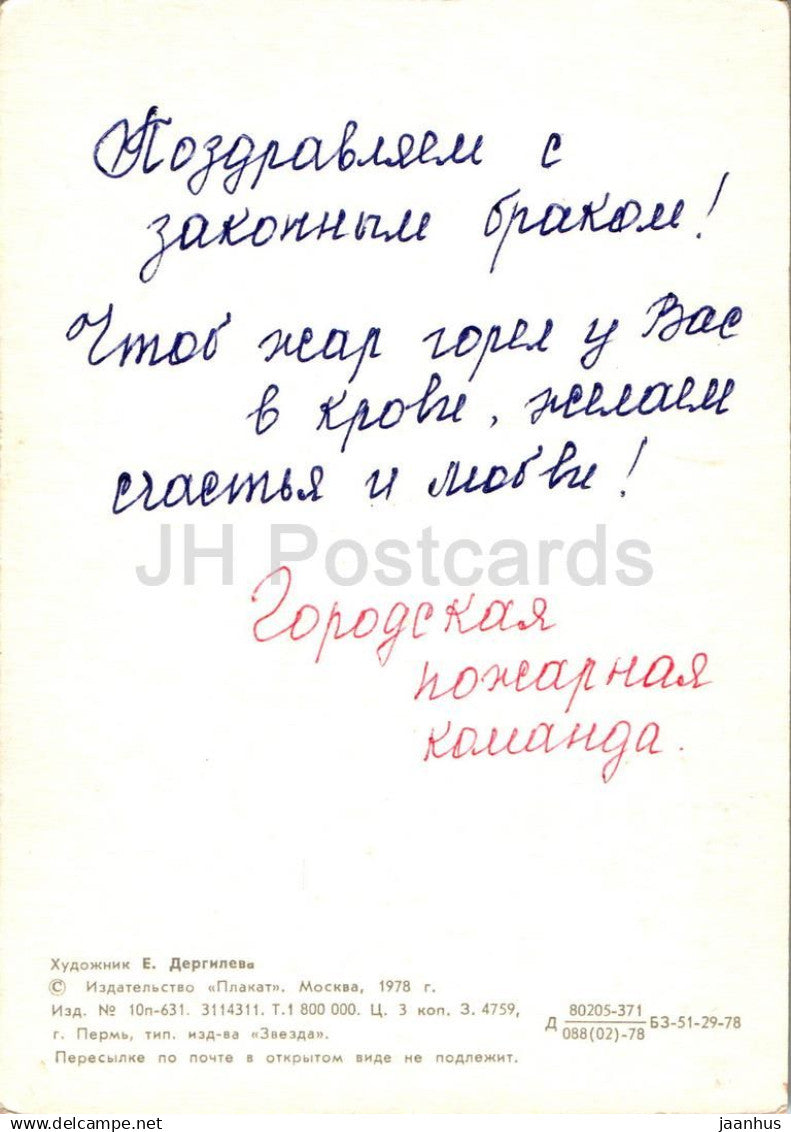 Поздравляем с
законным браком!
Чтоб жар горел у Вас
в крови, желаем
счастья и любви!
JH Postcards
Городская
пожарная
команда.
Художник Е. Дергилева
© Издательство «Плакат». Москва, 1978 г.
Изд. № 10п-631. 3114311. Т. 1 800 000. Ц. 3 коп. З. 4759,
г. Пермь, тип. изд-ва «Звезда».
Пересылке по почте в открытом виде не подлежит.
Д 80205-371 БЗ-51-29-78
088(02)-78
jaanhus